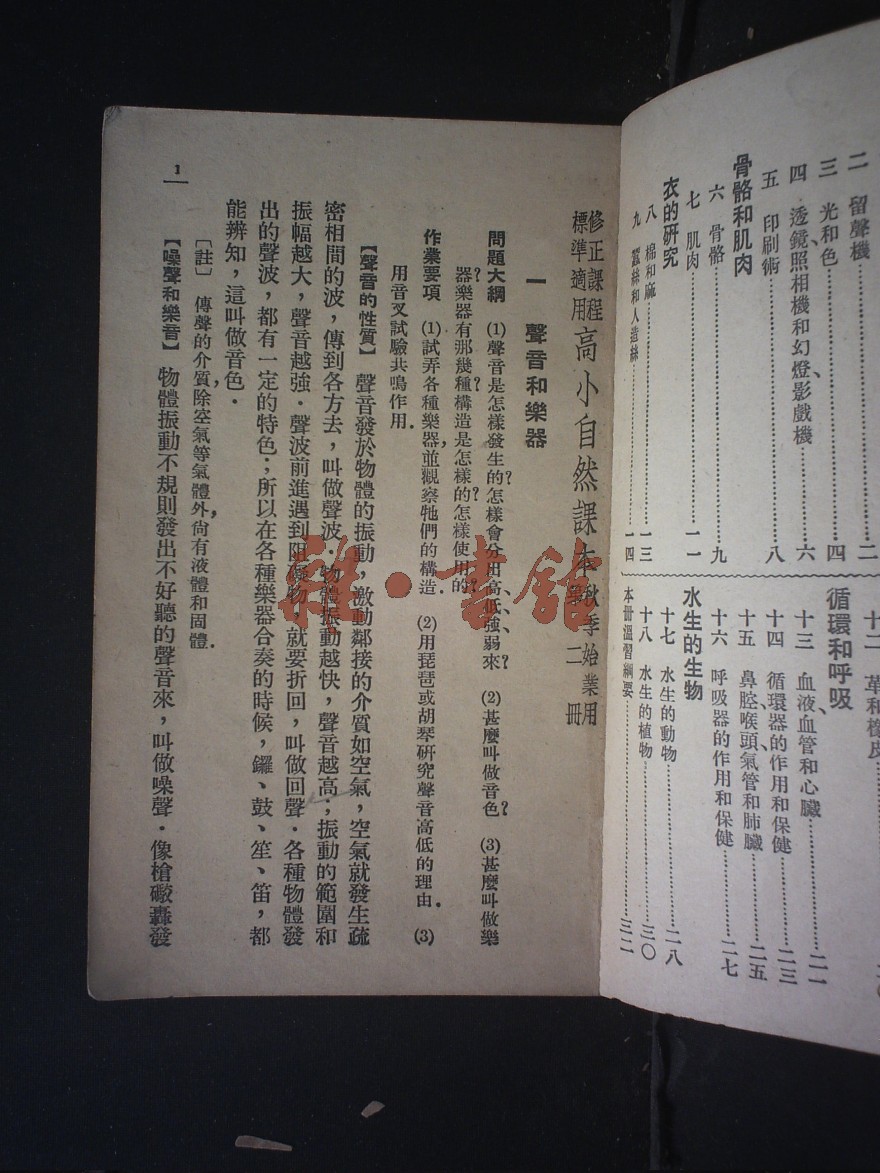 二 留聲機……二
三 光和色……四
四 透鏡、照相機和幻燈、影戲機……六
五 印刷術……八
骨骼和肌肉
六 骨骼……九
七 肌肉……一一
衣的研究
八 棉和麻……一三
九 蠶絲和人造絲……一四
十二 革和橡皮
循環和呼吸
十三 血液、血管和心臟……二一
十四 循環器的作用和保健……二三
十五 鼻腔、喉頭、氣管和肺臟……二五
十六 呼吸器的作用和保健……二七
水生的生物
十七 水生的動物……二八
十八 水生的植物……三〇
本冊溫習綱要……三二
修正課程標準適用 高小自然課本 秋季始業用 第二冊
一 聲音和樂器
問題大綱 (1)聲音是怎樣發生的?怎樣會分出高、低、強、弱來? (2)甚麼叫做音色? (3)甚麼叫做樂
器?樂器有那幾種?構造是怎樣的?怎樣使用的?
作業要項 (1)試弄各種樂器,並觀察牠們的構造. (2)用琵琶或胡琴研究聲音高低的理由. (3)
用音叉試驗共鳴作用.
【聲音的性質】 聲音發於物體的振動,激動鄰接的介質如空氣,空氣就發生疏
密相間的波,傳到各方去,叫做聲波.物體振動越快,聲音越高;振動的範圍和
振幅越大,聲音越強.聲波前進遇到阻礙物,就要折回,叫做回聲.各種物體發
出的聲波,都有一定的特色;所以在各種樂器合奏的時候,鑼、鼓、笙、笛,都
能辨知,這叫做音色.
〔註〕 傳聲的介質,除空氣等氣體外,尙有液體和固體.
【噪聲和樂音】 物體振動不規則發出不好聽的聲音來,叫做噪聲.像槍礮轟發
1